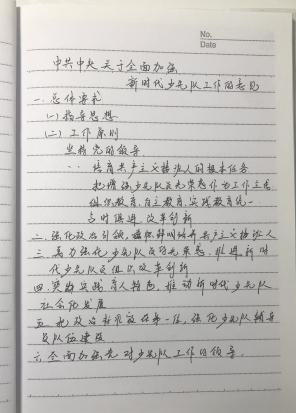 No.
Date
中共中央关于全面加强
新时代少先队工作的意见
一、总体要求
(一)指导思想
(二)工作原则
坚持党的领导
培育共产主义接班人的根本任务
把增强少先队员光荣感作为工作主线
组织教育、自主教育、实践教育统一
与时俱进、改革创新
二、强化政治引领，培养共产主义接班人
三、着力强化少先队员光荣感，推进新时
代少先队组织改革创新
四、突出实践育人特色，推动新时代少先队
社会化发展
五、把政治标准放在第一位，强化少先队辅导
员队伍建设
六、全面加强党对少先队工作的领导。